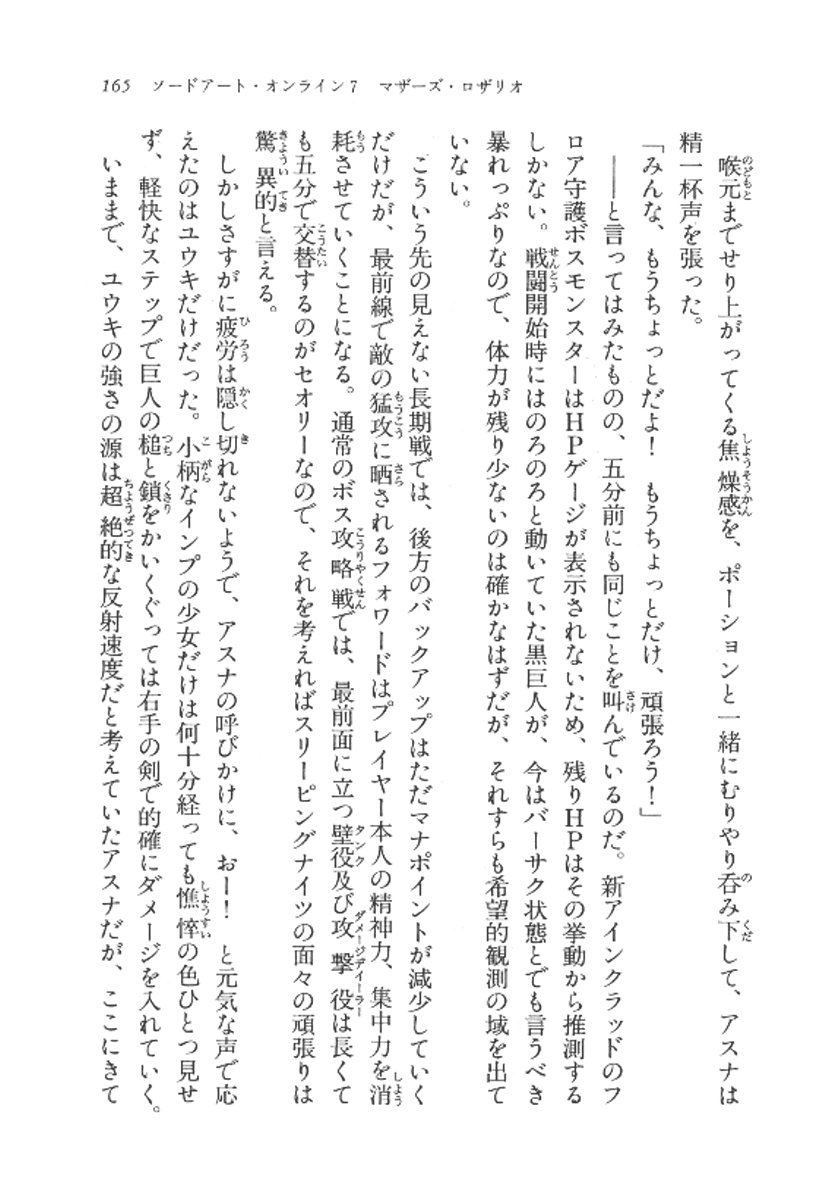 165　ソードアート・オンライン7　マザーズ・ロザリオ
　喉元までせり上がってくる焦燥感を、ポーションと一緒にむりやり呑み下して、アスナは
精一杯声を張った。
「みんな、もうちょっとだよ！　もうちょっとだけ、頑張ろう！」
　――と言ってはみたものの、五分前にも同じことを叫んでいるのだ。新アインクラッドのフ
ロア守護ボスモンスターはＨＰゲージが表示されないため、残りＨＰはその挙動から推測する
しかない。戦闘開始時にはのろのろと動いていた黒巨人が、今はバーサク状態とでも言うべき
暴れっぷりなので、体力が残り少ないのは確かなはずだが、それすらも希望的観測の域を出て
いない。
　こういう先の見えない長期戦では、後方のバックアップはただマナポイントが減少していく
だけだが、最前線で敵の猛攻に晒されるフォワードはプレイヤー本人の精神力、集中力を消
耗させていくことになる。通常のボス攻略戦では、最前面に立つ壁役及び攻撃役は長くて
も五分で交替するのがセオリーなので、それを考えればスリーピングナイツの面々の頑張りは
驚異的と言える。
　しかしさすがに疲労は隠し切れないようで、アスナの呼びかけに、おー！　と元気な声で応
えたのはユウキだけだった。小柄なインプの少女だけは何十分経っても憔悴の色ひとつ見せ
ず、軽快なステップで巨人の槌と鎖をかいくぐっては右手の剣で的確にダメージを入れていく。
　いままで、ユウキの強さの源は超絶的な反射速度だと考えていたアスナだが、ここにきて